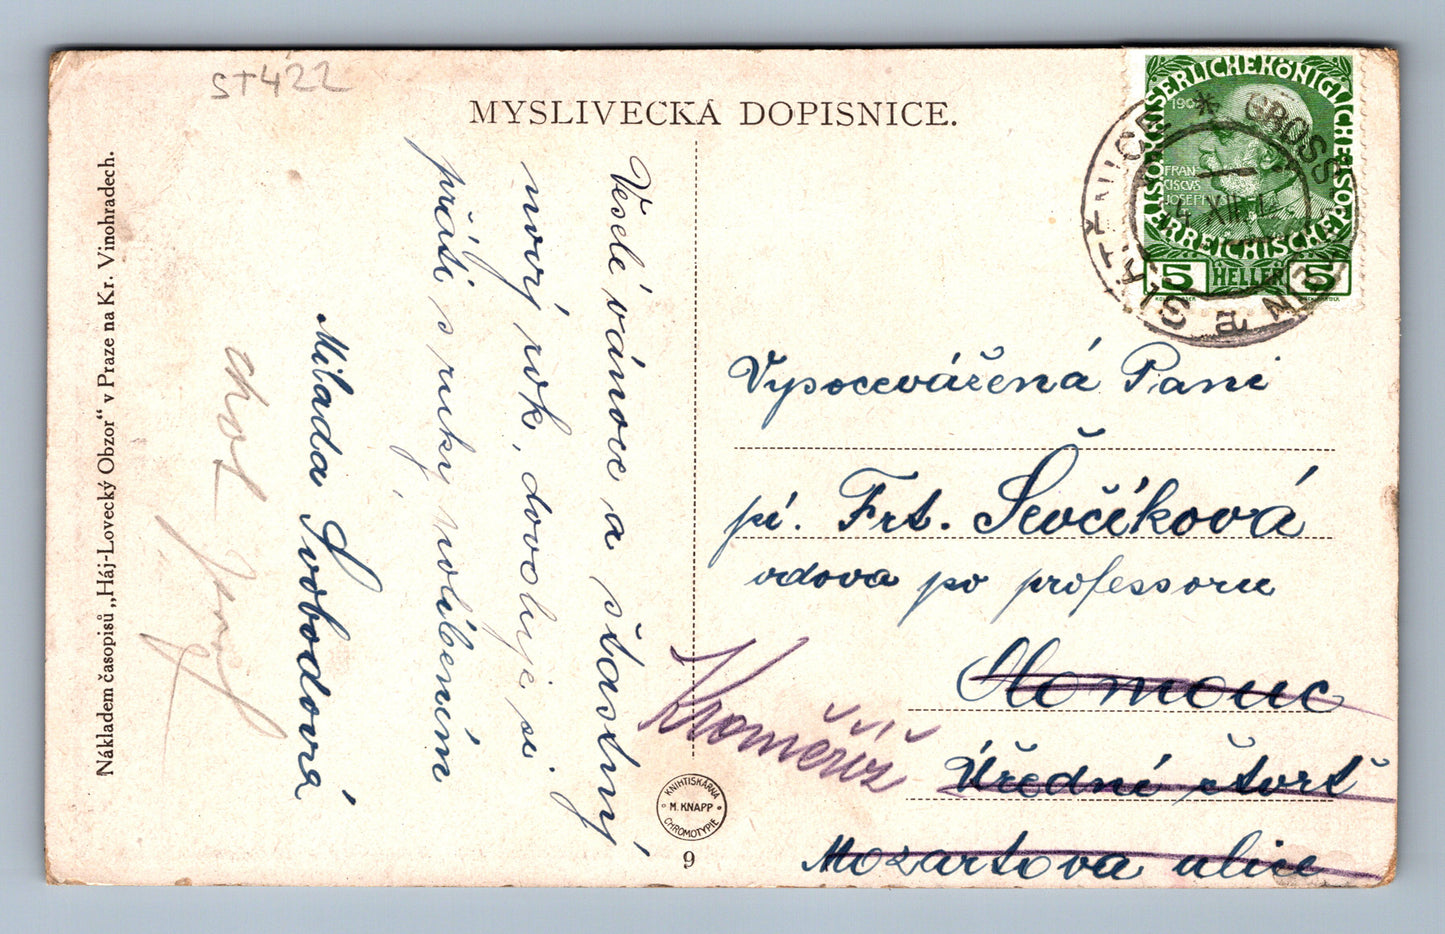 ST422
MYSLIVECKÁ DOPISNICE.
Nákladem časopisů „Háj-Lovecký Obzor“ v Praze na Kr. Vinohradech.
Veselé vánoce a šťastný
nový rok, dovoluje si
přáti s ruky políbením
Milada Svobodová
KAISERLICHE KÖNIGLICHE ÖSTERREICHISCHE
1908
FRAN
CISCVS
JOSEPHVS I
5 HELLER 5
GROSS
XII
Vysocevážená Paní
pí. Frt. Ševčíková
vdova po professoru
Olomouc
Kroměříž
Úřední čtvrť
Mozartova ulice
KNIHTISKÁRNA
M. KNAPP
CHROMOTYPIE
9